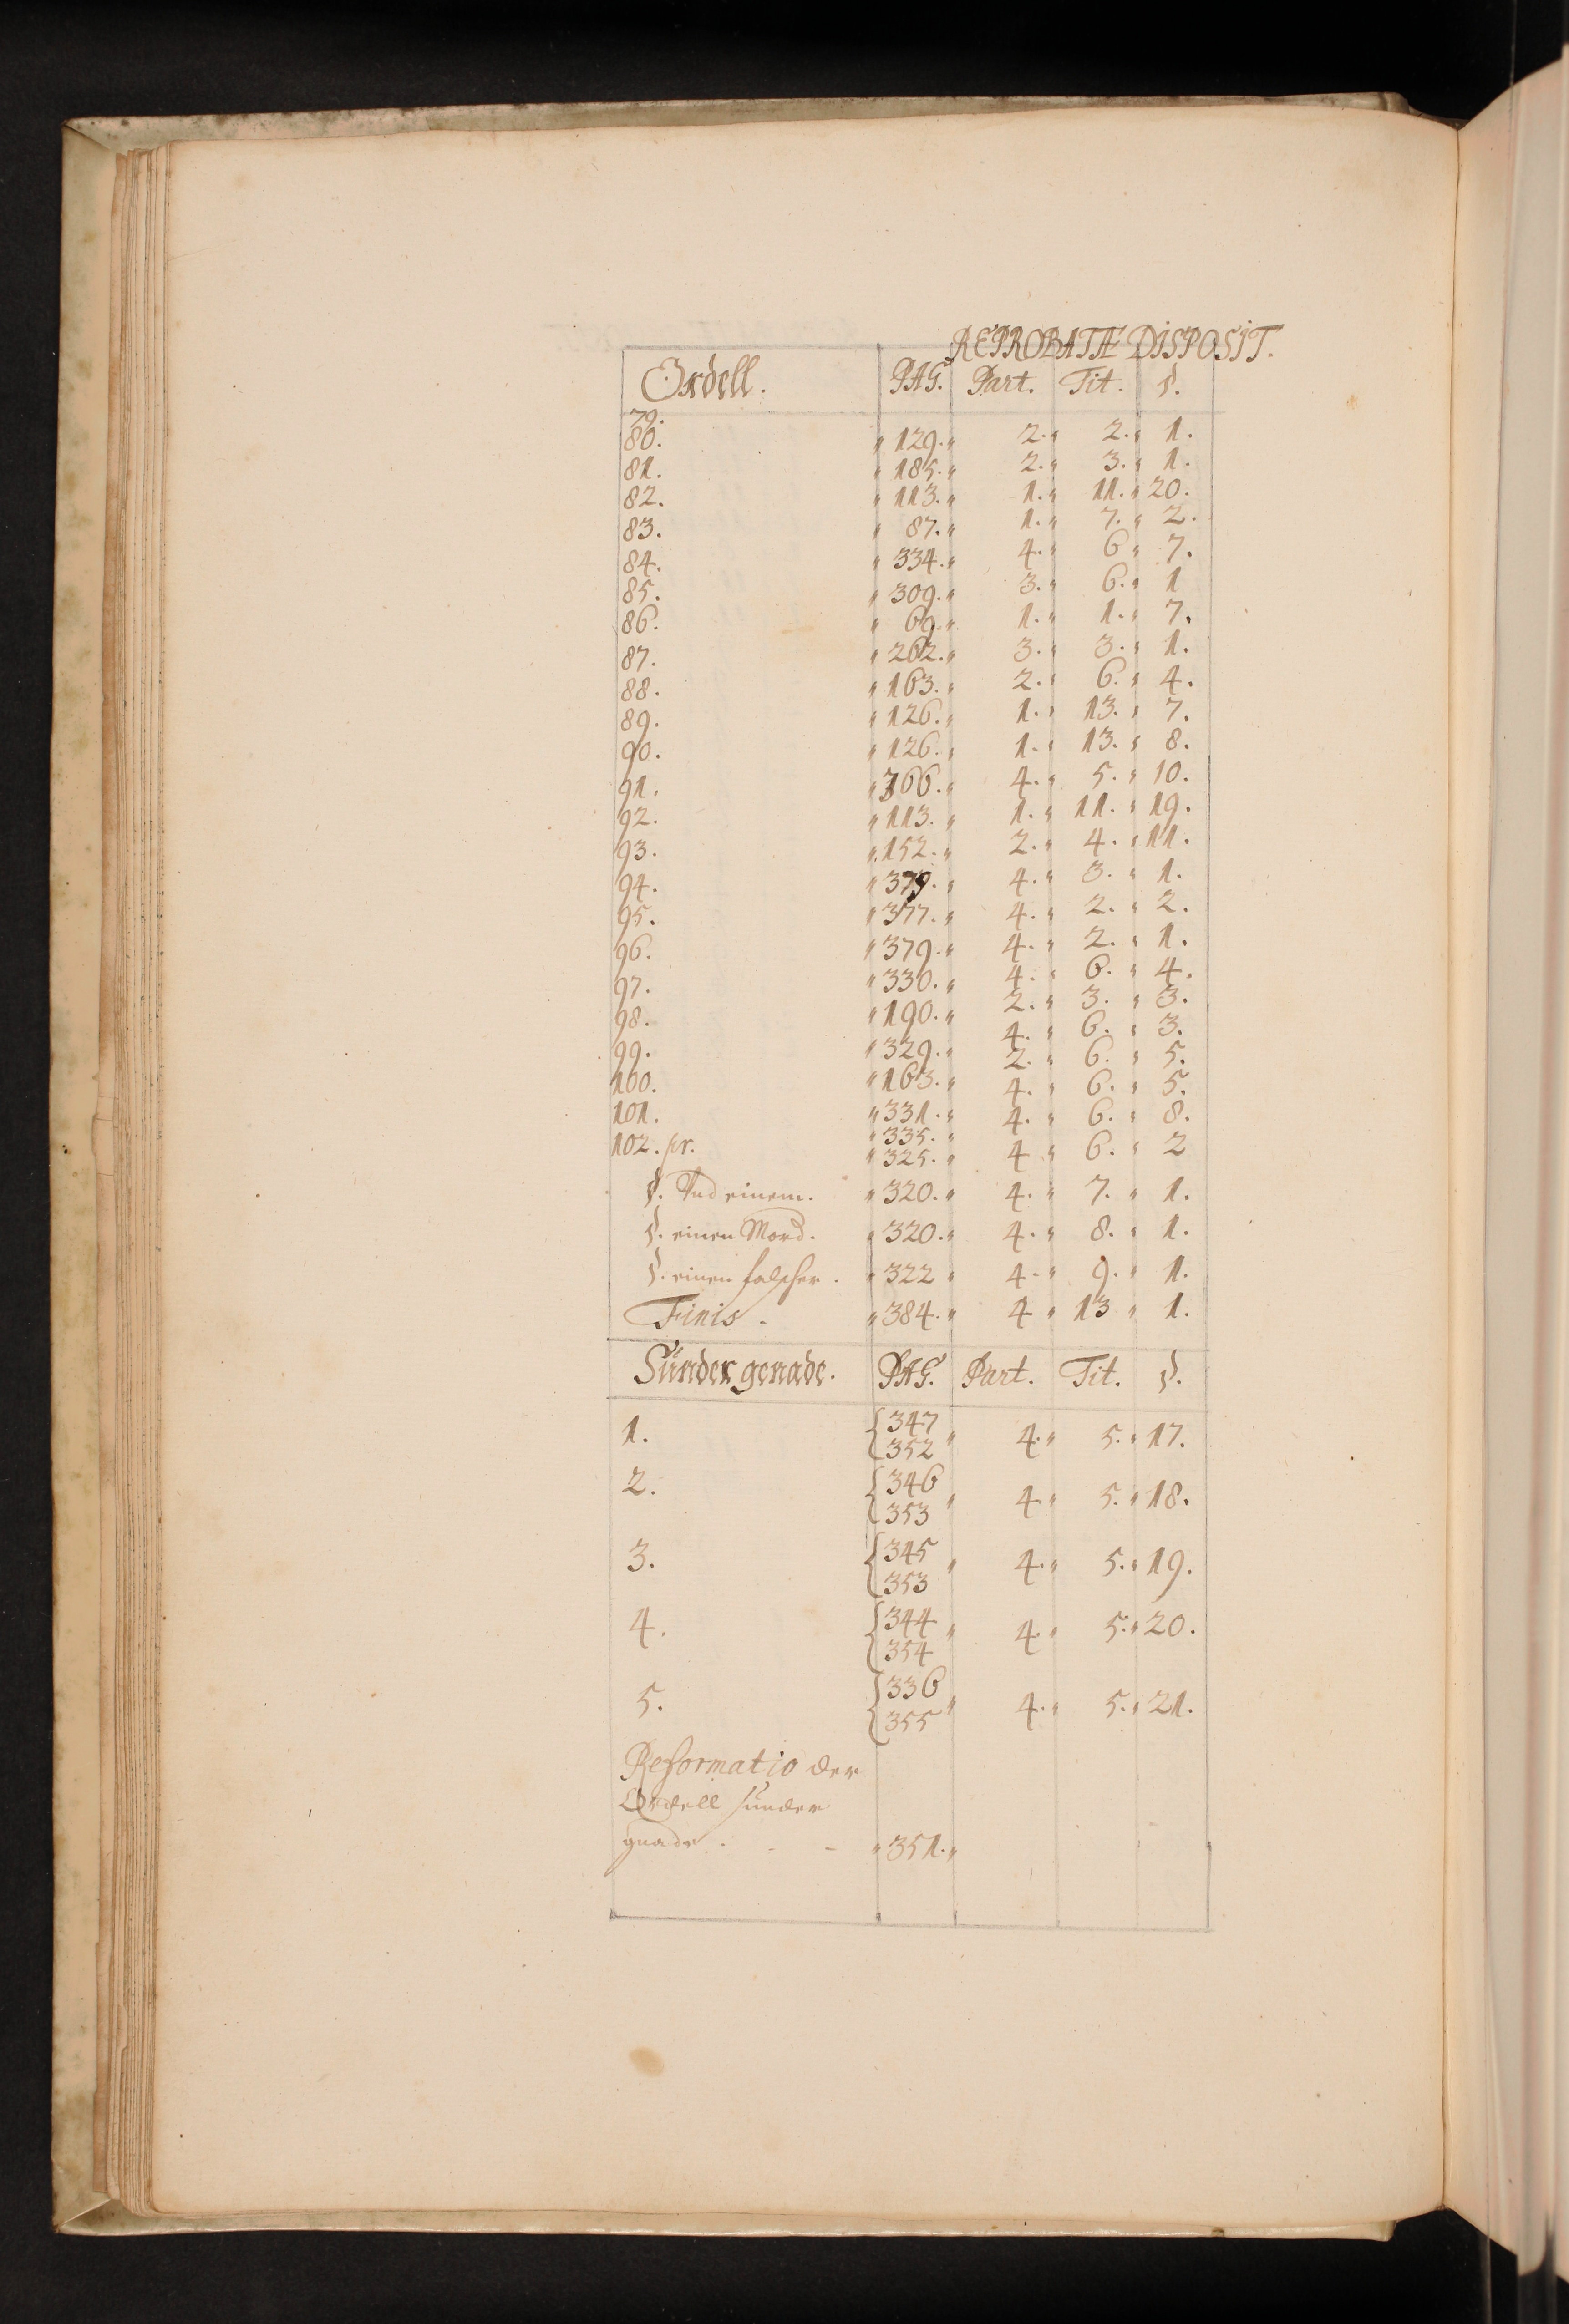 REPROBATÆ DISPOSIT.
Ordell. PAG. Part. Tit. §.
79.
80. " 129. " 2. " 2. " 1.
81. " 185. " 2. " 3. " 1.
82. " 113. " 1. " 11. " 20.
83. " 87. " 1. " 7. " 2.
84. " 334. " 4. " 6 " 7.
85. " 309. " 3. " 6. " 1
86. " 69. " 1. " 1. " 7.
87. " 262. " 3. " 3. " 1.
88. " 163. " 2. " 6. " 4.
89. " 126. " 1. " 13. " 7.
90. " 126. " 1. " 13. " 8.
91. " 366. " 4. " 5. " 10.
92. " 113. " 1. " 11. " 19.
93. " 152. " 2. " 4. " 11.
94. " 379. " 4. " 3. " 1.
95. " 377. " 4. " 2. " 2.
96. " 379. " 4. " 2. " 1.
97. " 330. " 4. " 6. " 4.
98. " 190. " 2. " 3. " 3.
99. " 329. " 4. " 6. " 3.
100. " 163. " 2. " 6. " 5.
101. " 331. " 4. " 6. " 5.
" 335. " 4. " 6. " 8.
102. pr. " 325. " 4 " 6. " 2
§. Und einem. " 320. " 4. " 7. " 1.
§. einen Mord. " 320. " 4. " 8. " 1.
§. einen falscher. " 322 " 4. " 9. " 1.
Finis. " 384. " 4 " 13 " 1.
Sünder genade. PAG. Part. Tit. §.
1. { 347
352 " 4. " 5. " 17.
2. { 346
353 " 4 " 5. " 18.
3. { 345
353 " 4. " 5. " 19.
4. { 344
354 " 4 " 5. " 20.
5. { 336
355 " 4. " 5. " 21.
Reformatio der
Ordell sunder
gnade. - - " 351. "